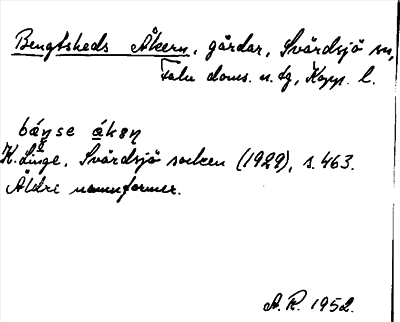 Bengtsheds Åkern, gårdar, Svärdsjö sn,
Falu doms. n. tg, Kopp. l.
báŋse åkən
K. Linge, Svärdsjö socken (1929), s. 463.
Äldre namnformer.
A. R. 1952.